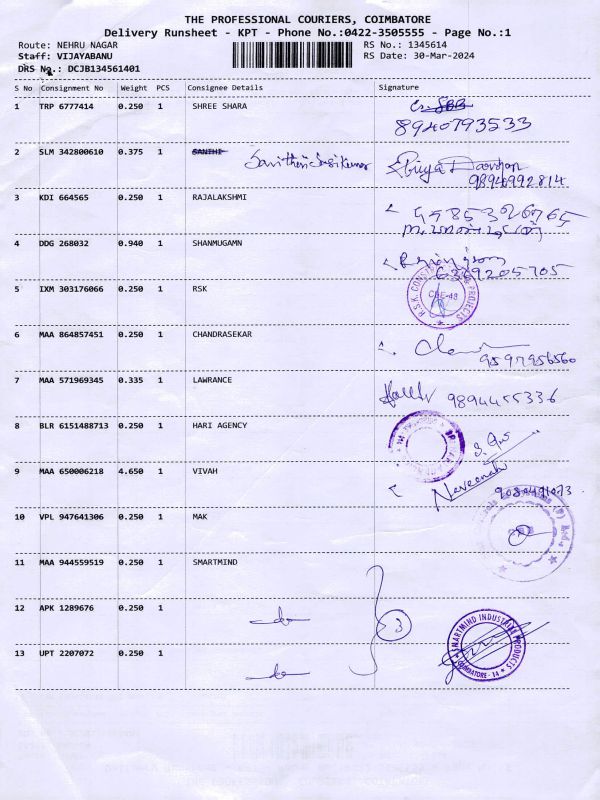 THE PROFESSIONAL COURIERS, COIMBATORE
Delivery Runsheet - KPT - Phone No.:0422-3505555 - Page No.:1
Route: NEHRU NAGAR RS No.: 1345614
Staff: VIJAYABANU RS Date: 30-Mar-2024
DRS No.: DCJB134561401
S No Consignment No Weight PCS Consignee Details Signature
1 TRP 6777414 0.250 1 SHREE SHARA
8940793533
2 SLM 342800610 0.375 1
9894992814
3 KDI 664565 0.250 1 RAJALAKSHMI
4 DDG 268032 0.940 1 SHANMUGAMN
5 IXM 303176066 0.250 1 RSK
CBE-48
6 MAA 864857451 0.250 1 CHANDRASEKAR
9597956560
7 MAA 571969345 0.335 1 LAWRANCE
9894455336
8 BLR 6151488713 0.250 1 HARI AGENCY
9 MAA 650006218 4.650 1 VIVAH
Naveenath
10 VPL 947641306 0.250 1 MAK
11 MAA 944559519 0.250 1 SMARTMIND
12 APK 1289676 0.250 1
3
13 UPT 2207072 0.250 1
SMARTMIND INDUSTRIAL PRODUCTS
COIMBATORE - 14